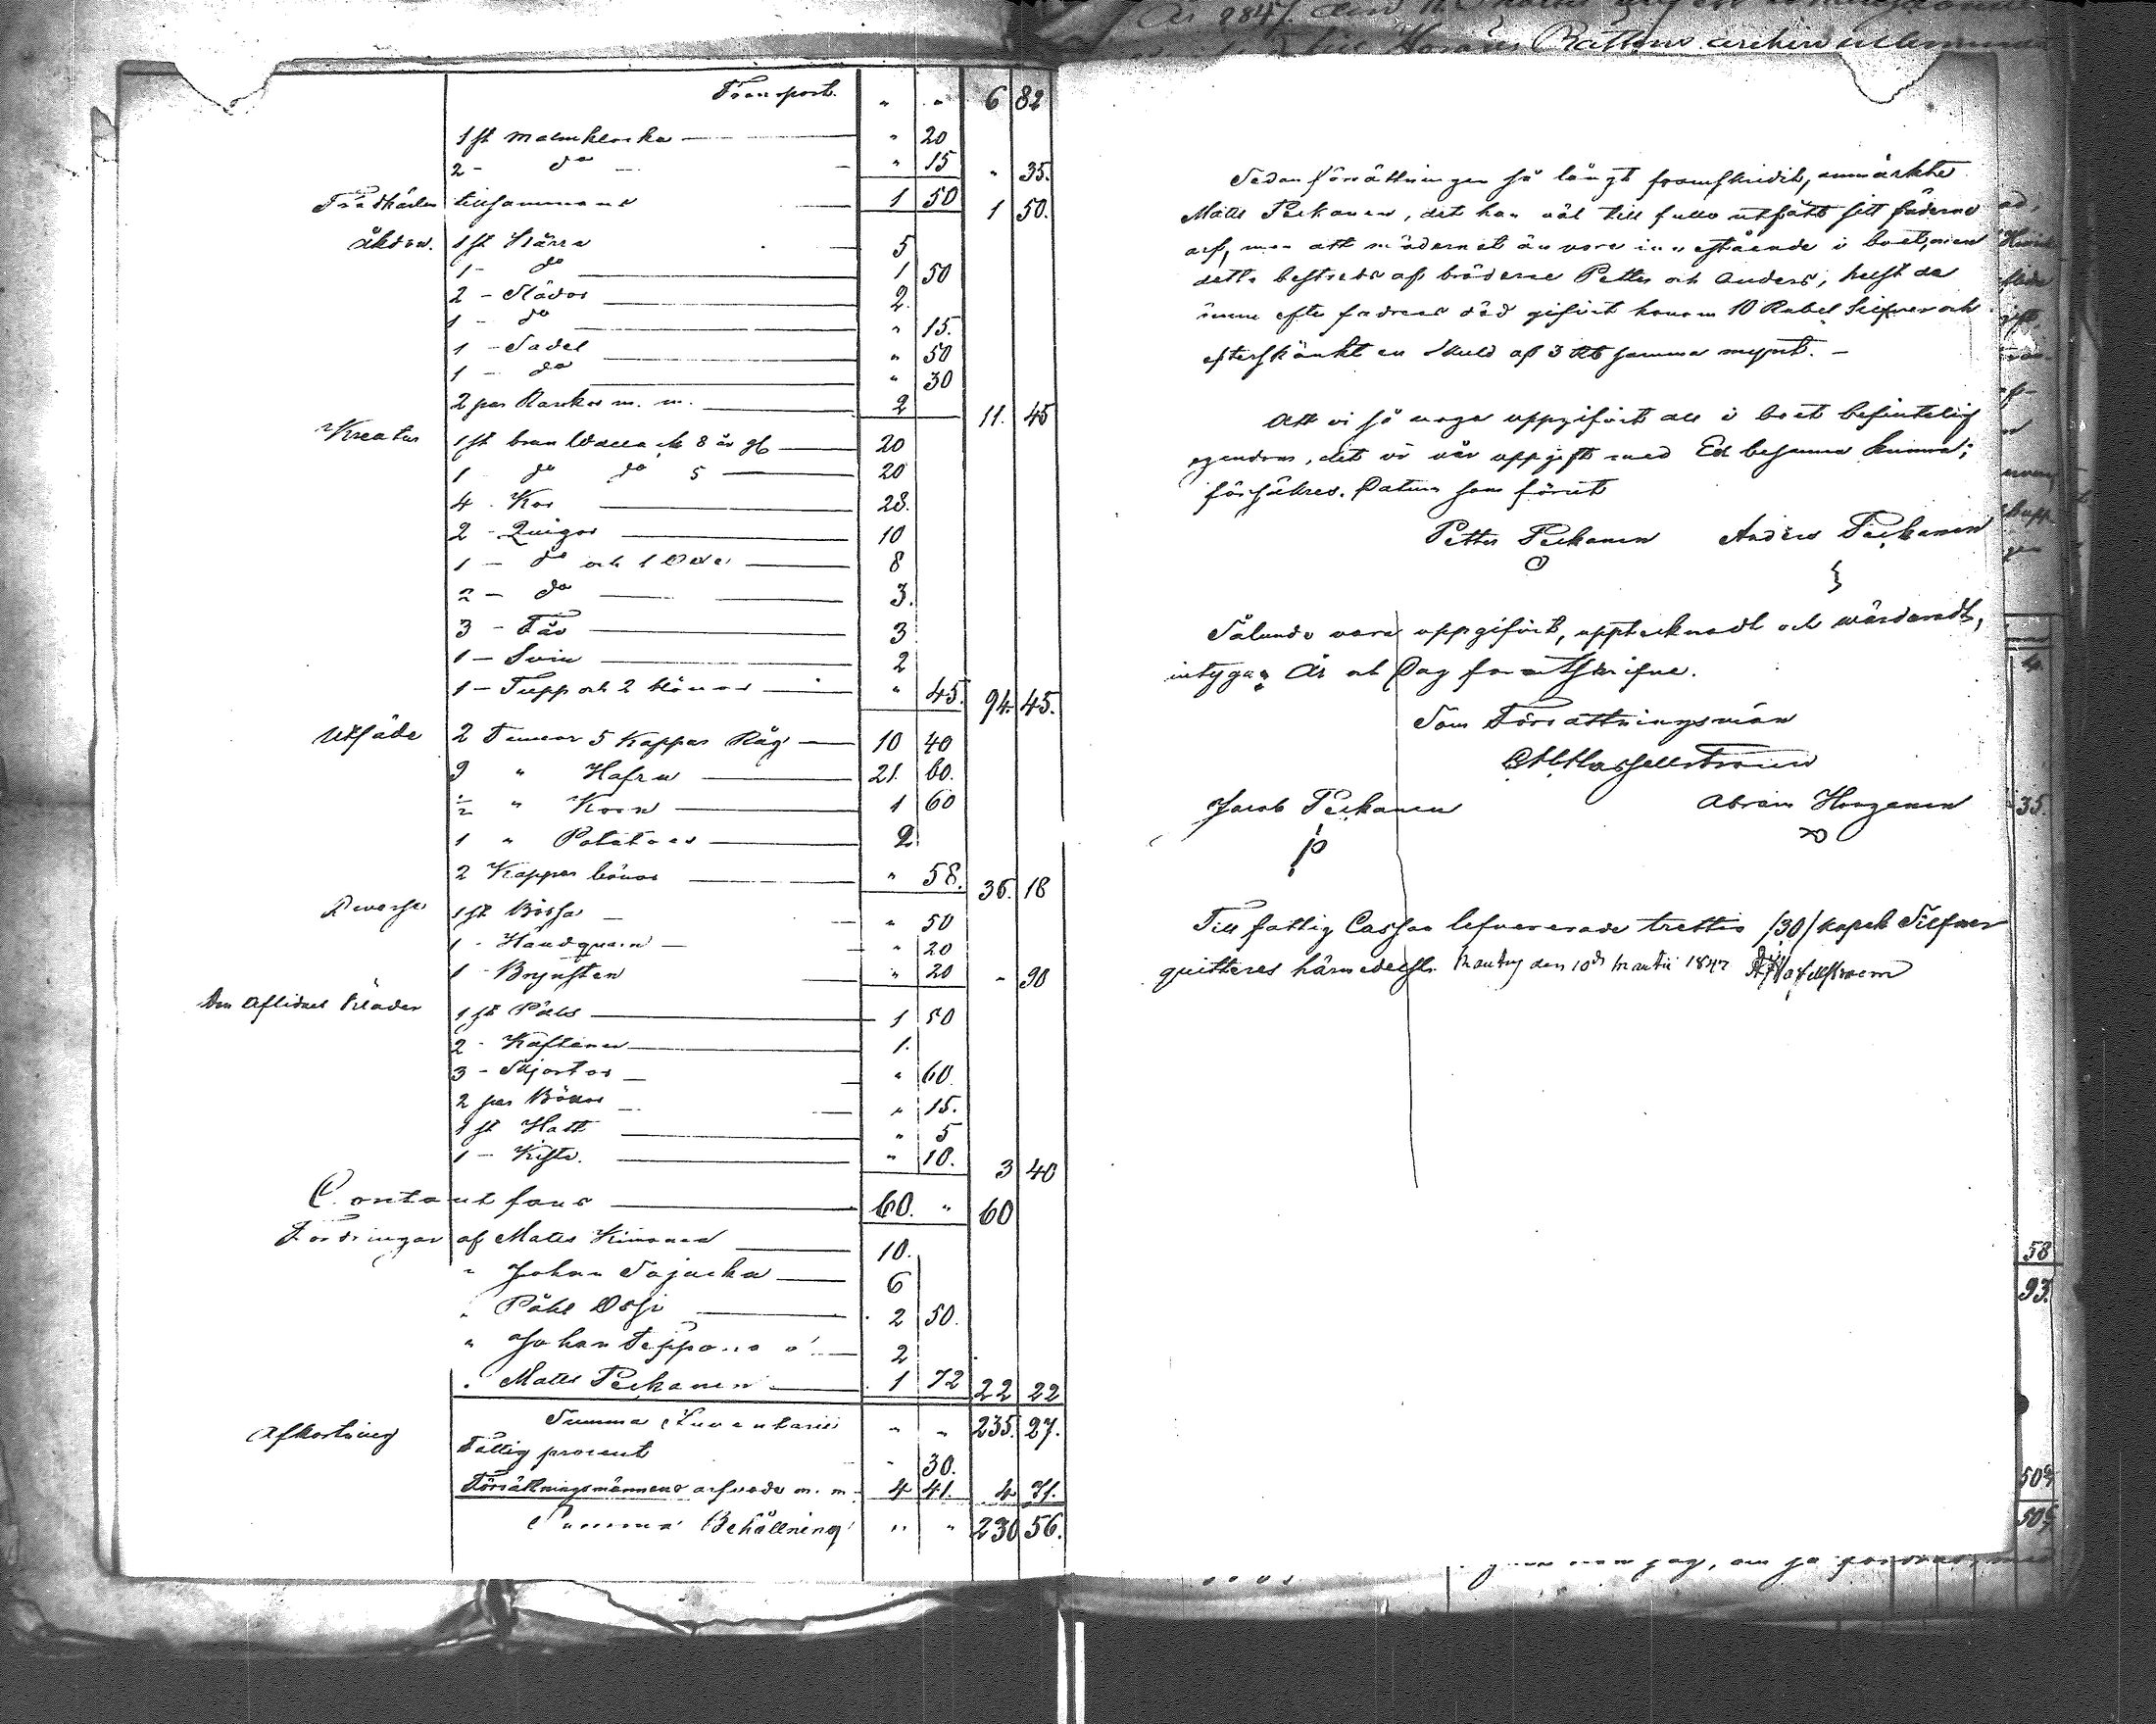 Transport. " " 6 82
1 st Malmklocka " 20
2 - do " 15 " 35.
Trädkärlen tillsammans 1 50 1 50.
Åkdon. 1 st Kärra 5
1 - do 1 50
2 - Slädor 2.
1 - do " 15.
1 - Sadel " 50
1 - do " 30
2 par Rankor m. m. 2 11. 45
Kreatur 1 st brun Wallack 8 år gl 20
1 do do 5 20
4 - Kor 28.
2 - Quigor 10
1 - do och 1 8
2 - do 3.
3 - Får 3
1 - Svin 2
1 - Tupp och 2 hönor " 45. 94. 45.
Utsäde 2 Tunnor 5 Kappar Råg 10 40
9 " Hafra 21. 60.
½ " Korn 1 60
1 " Potatoes 2.
2 Kappar bönor " 58. 36. 18
Diverse 1 st Bössa " 50
1 - Handquarn " 20
1 - Brynsten " 20 " 90
Den Aflidnes Kläder 1 st Päls 1 50
2 - Kaftaner 1.
3 - Skjortor " 60.
2 par Böxor " 15.
1 st Hatt " 5
1 - Kista. " 10. 3 40
Contant fans 60. " 60
Fordringar af Matts Kimonen 10.
" Johan Sajacka 6
" Påhl Ossi 2 50.
" Johan 2
" Matts Peckanen 1 72 22 22
Summa Inventarii " " 235. 27.
Afkortning Fattig procent " 30.
Förrättningsmännens arfvode m. m. 4 41. 4 71.
Summa Behållning " " 230 56.
År 1847. den
Häradsrättens archiv
Sedan förrättningen så långt framskridit, anmärkte
Matts Peckanen, det han väl till fullo utfått sitt fäderne
arf, men att mödernet än vore innestående i boet, men
detta bestreds af bröderne Petter och Anders, helst de
ännu efter fadrens död gifvit honom 10 Rubel Silfver och
efterskänkt en skuld af 3 Rb samma mynt. -
Att vi så noga uppgifvit all i boet befintelig
egendom, det vi vår uppgift med Ed besanna kunna;
försäkres. Datum som förut
Petter Peckanen Anders Peckanen
Sålunda vara uppgifvit, upptecknadt och wärderadt,
intygar År och Dag förutskrifne.
Som Förrättningsmän
Jacob Peckanen Abram Honganen
Till fattig Cassan lefvererade trettio /30/ kopek Silfver
quitteres härmedelst. den 10de Martii 1847
ad.
4.
35.
58
93.
50
50